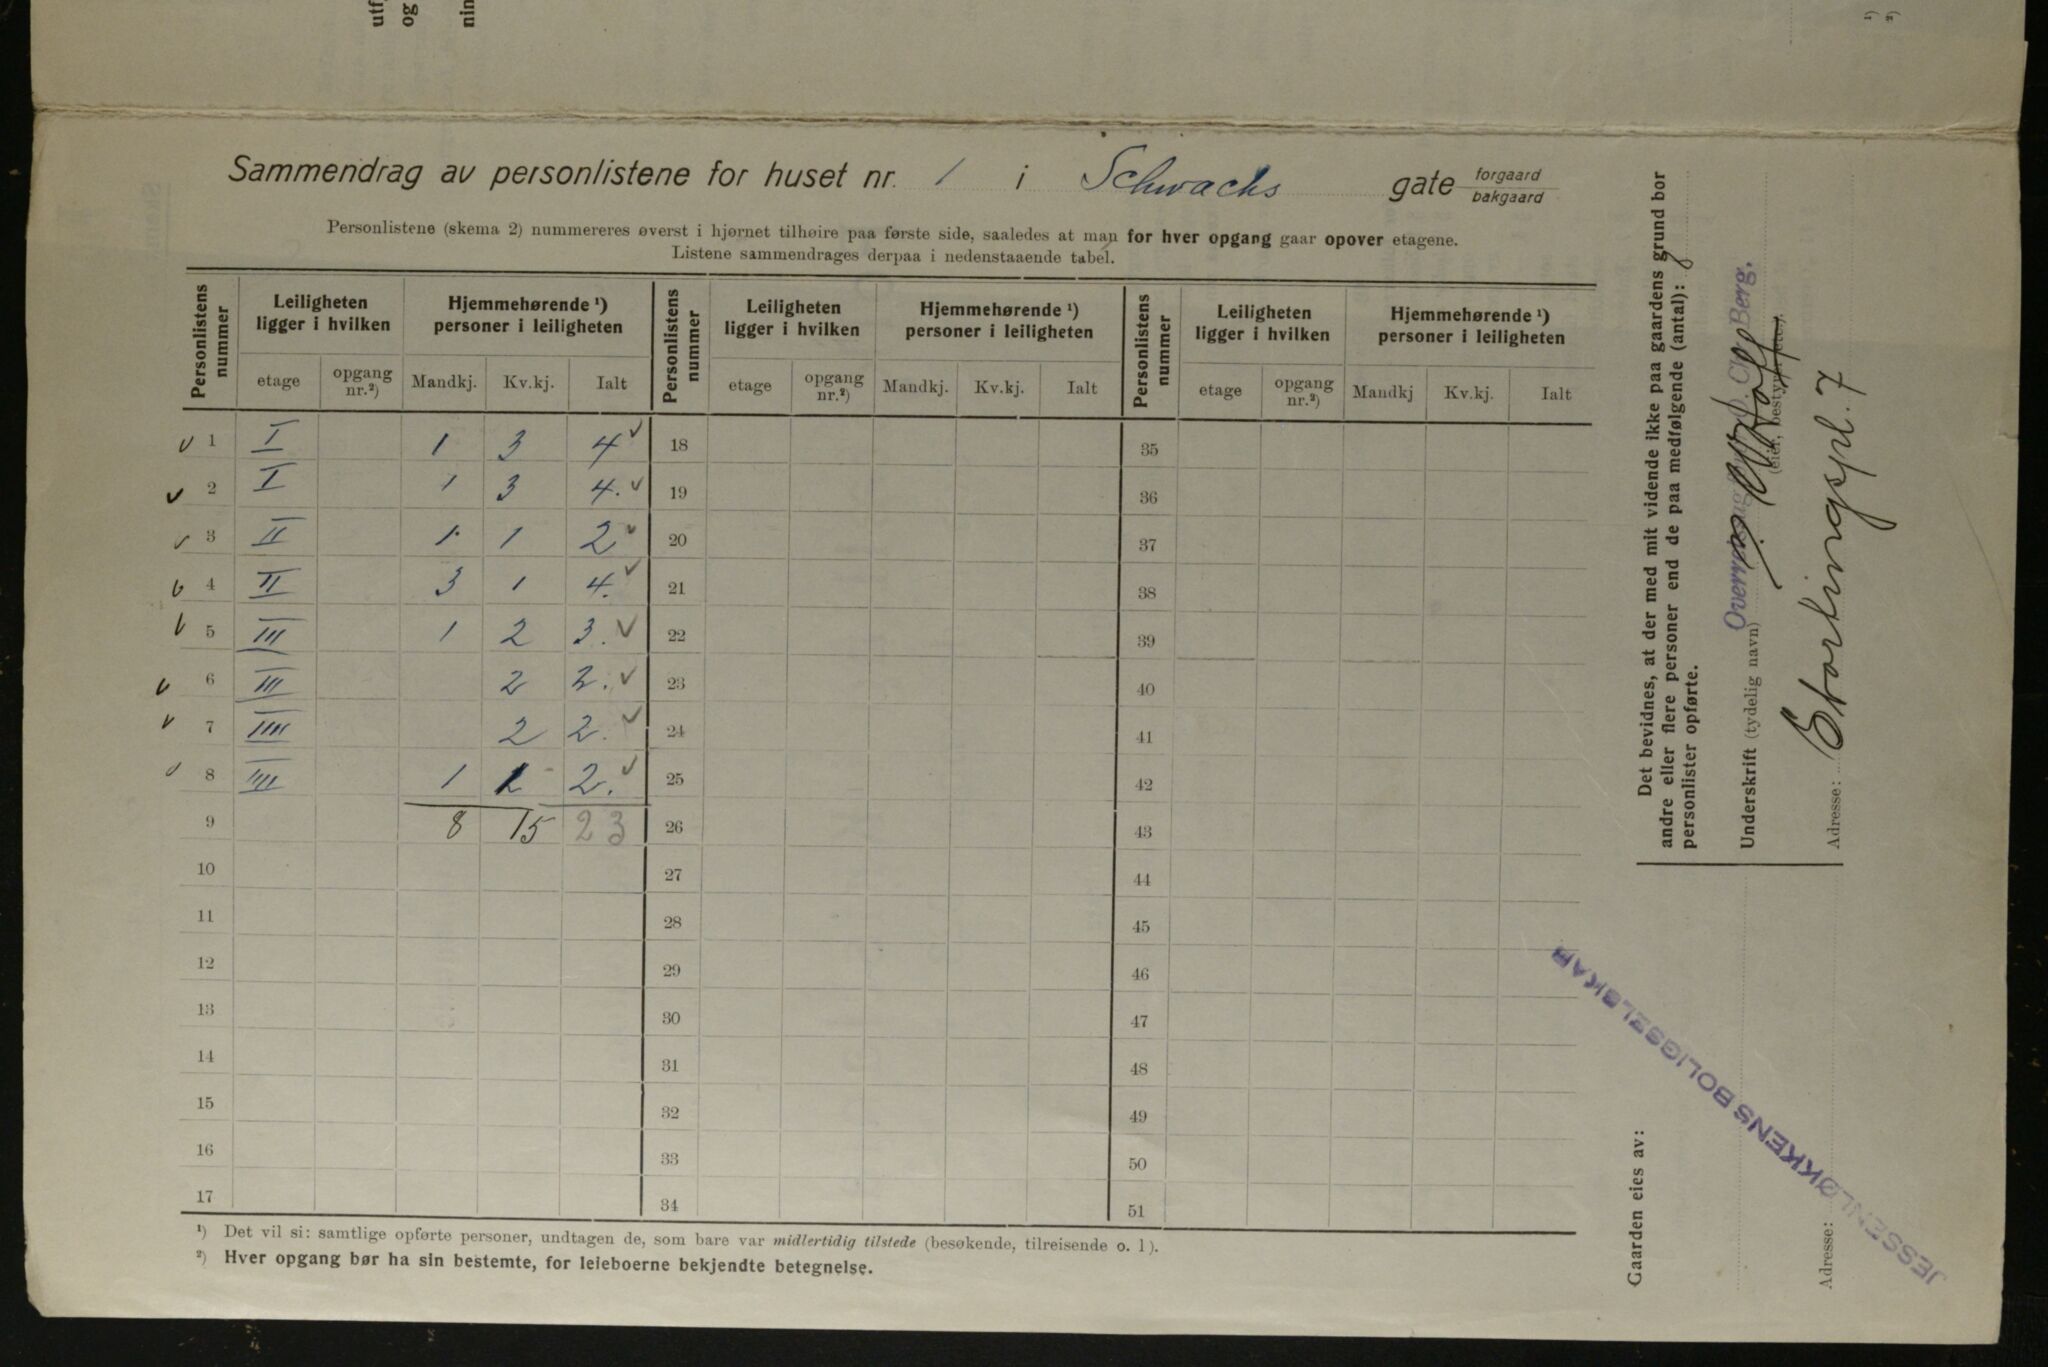 Sammendrag av personlistene for huset nr. 1 i Schwachs gate forgaard bakgaard
Personlistene (skema 2) nummereres øverst i hjørnet tilhøire paa første side, saaledes at man for hver opgang gaar opover etagene.
Listene sammendrages derpaa i nedenstaaende tabel.
Personlistens nummer
Leiligheten ligger i hvilken
Hjemmehørende ¹) personer i leiligheten
Personlistens nummer
Leiligheten ligger i hvilken
Hjemmehørende ¹) personer i leiligheten
Personlistens nummer
Leiligheten ligger i hvilken
Hjemmehørende ¹) personer i leiligheten
etage opgang nr.²) Mandkj. Kv.kj. Ialt etage opgang nr.²) Mandkj. Kv.kj. Ialt etage opgang nr.²) Mandkj Kv.kj. Ialt
1 I 1 3 4 18 35
2 I 1 3 4. 19 36
3 II 1 1 2 20 37
4 II 3 1 4. 21 38
5 III 1 2 3. 22 39
6 III 2 2. 23 40
7 IIII 2 2. 24 41
8 IIII 1 1 2. 25 42
9 8 15 23 26 43
10 27 44
11 28 45
12 29 46
13 30 47
14 31 48
15 32 49
16 33 50
17 34 51
¹) Det vil si: samtlige opførte personer, undtagen de, som bare var midlertidig tilstede (besøkende, tilreisende o. l).
²) Hver opgang bør ha sin bestemte, for leieboerne bekjendte betegnelse.
Det bevidnes, at der med mit vidende ikke paa gaardens grund bor
andre eller flere personer end de paa medfølgende (antal): 8
personlister opførte.
Underskrift (tydelig navn)
(eier, bestyrer etc.).
Berg.
Adresse: Stortingspl. 7
Gaarden eies av:
JESSENLØKKENS BOLIGSELSKAB
Adresse: